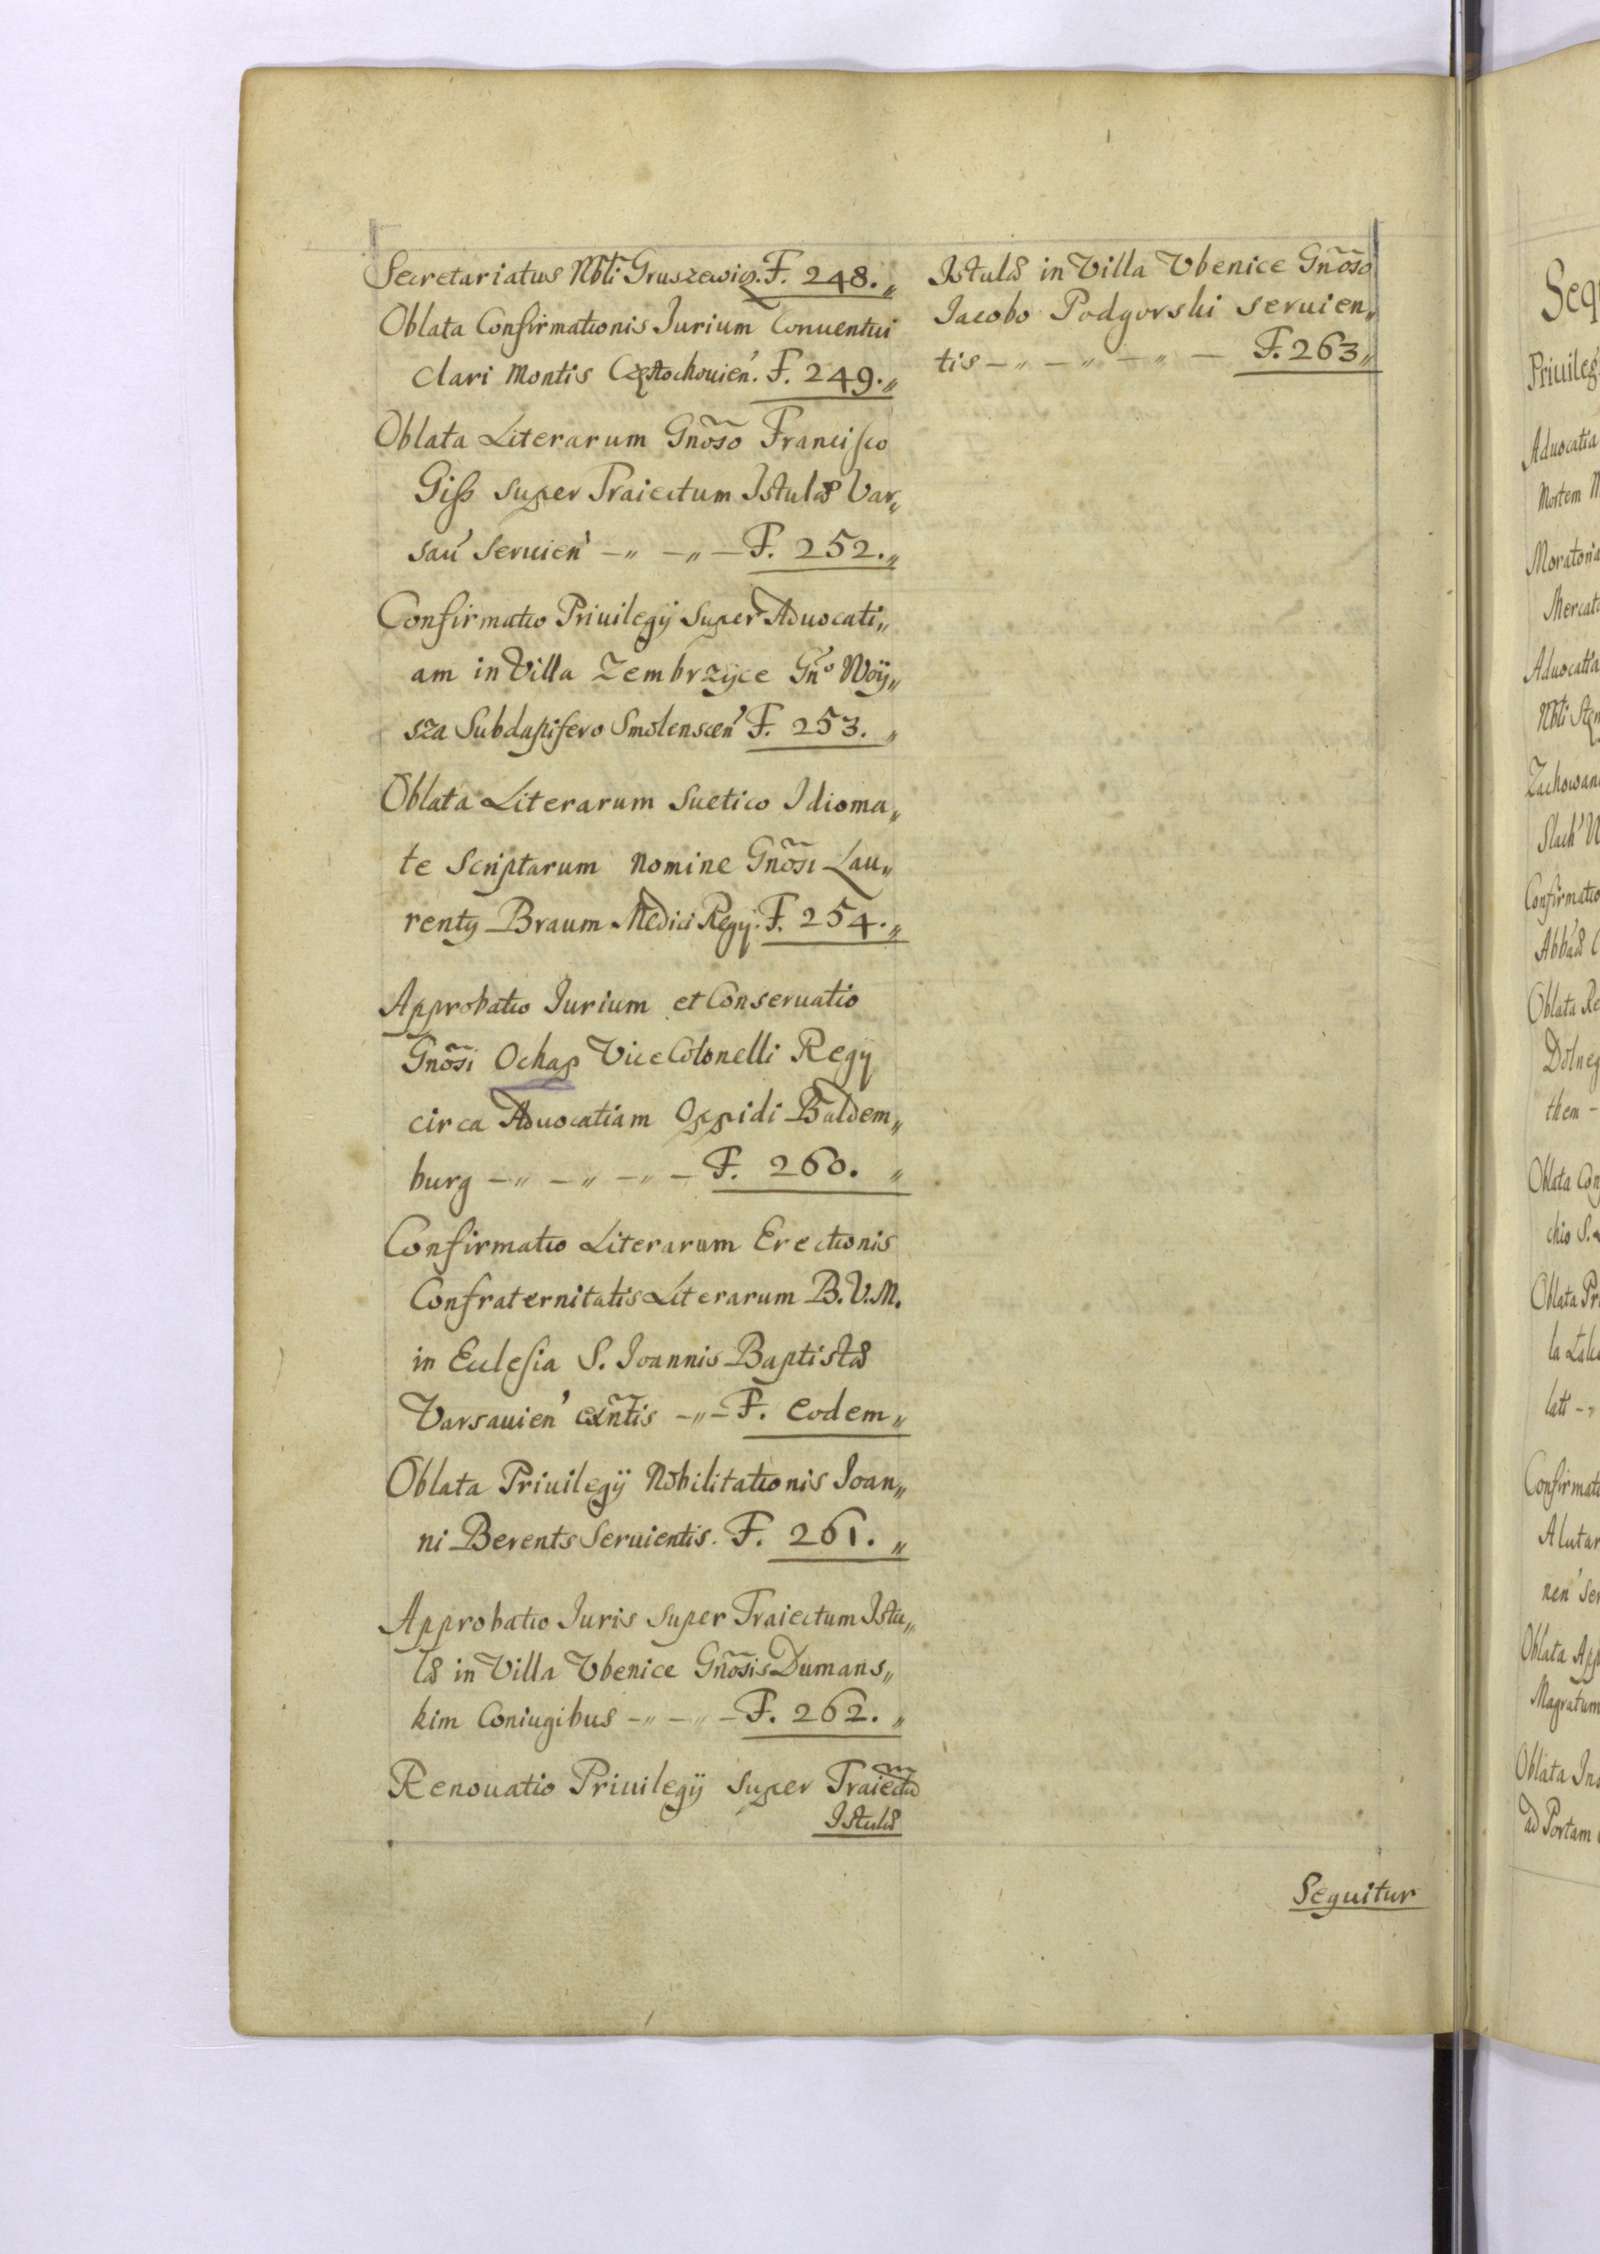 Secretariatus Nbti Gruszewicz. F. 248.„
Oblata Confirmationis Iurium Conuentui
clari Montis Częstochouien'. F. 249.„
Oblata Literarum Gnõso Francisco
Giss super Traiectum Istulæ Var„
sau' seruien' –„ –„ – F. 252.„
Confirmatio Priuilegÿ super Aduocati„
am in Villa Zembrzyce Gn'o Woÿ„
sza Subdapifero Smolenscen' F. 253. „
Oblata Literarum Suetico Idioma„
te Scriptarum nomine Gnõsi Lau„
renty Braum Medici Regÿ. F. 254.„
Approbatio Iurium et Conseruatio
Gnõsi Ochap Vice Colonelli Regÿ
circa Aduocatiam Oppidi Baldem„
burg –„ –„ –„ – F. 260. „
Confirmatio Literarum Erectionis
Confraternitatis Literarum B.V.M.
in Ecclesia S. Ioannis Baptistæ
Varsauien' exñtis –„– F. eodem„
Oblata Priuilegÿ Nobilitationis Ioan„
ni Berents Seruientis. F. 261. „
Approbatio Iuris super Traiectum Istu„
læ in Villa Vbenice Gnõsis Dumans„
kim Coniugibus –„ –„ – F. 262. „
Renouatio Priuilegÿ super Traiectũ
Istulæ
Istulæ in Villa Vbenice Gnõso
Iacobo Podgorski seruien„
tis –„ –„ –„ – F. 263„
Sequitur
Priuileg
Aduocatia
Mortem
Moratoria
Mercat
Aduocatia
Nbti
Confirmatio
Oblata Re
them –
Oblata Con
chio S.
Oblata Pr
Confirmat
Alutar
nen' ser
Oblata App
Magratum
Oblata Ins
ad Portam